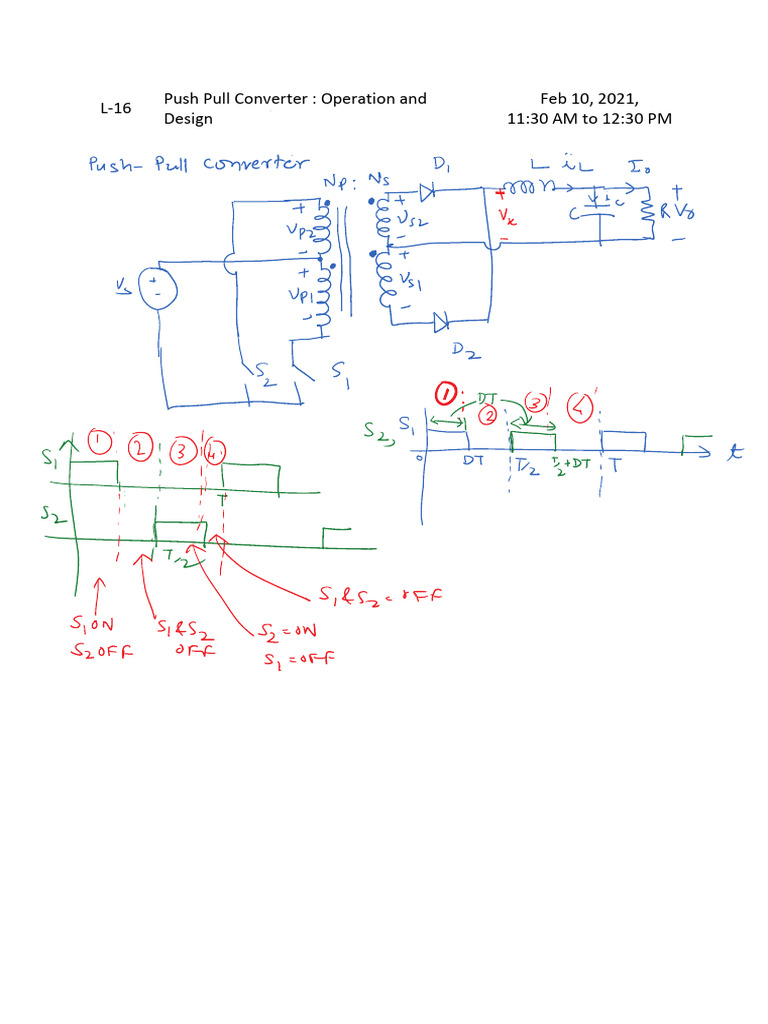 L-16
Push Pull Converter : Operation and
Design
Feb 10, 2021,
11:30 AM to 12:30 PM
Push-Pull Converter
Np : Ns
D1
L iL Io
+ VP2 -
+ VS2 -
+ Vx -
C ic
R Vo
+ -
Vs + -
+ VP1 -
+ VS1 -
D2
S2 S1
1 DT 2 3 4
S2, S1
0 DT T/2 T/2+DT T t
1 2 3 4
S1
T
S2
T/2
S1 & S2 = OFF
S1 ON
S2 OFF
S1 & S2
OFF
S2 = ON
S1 = OFF